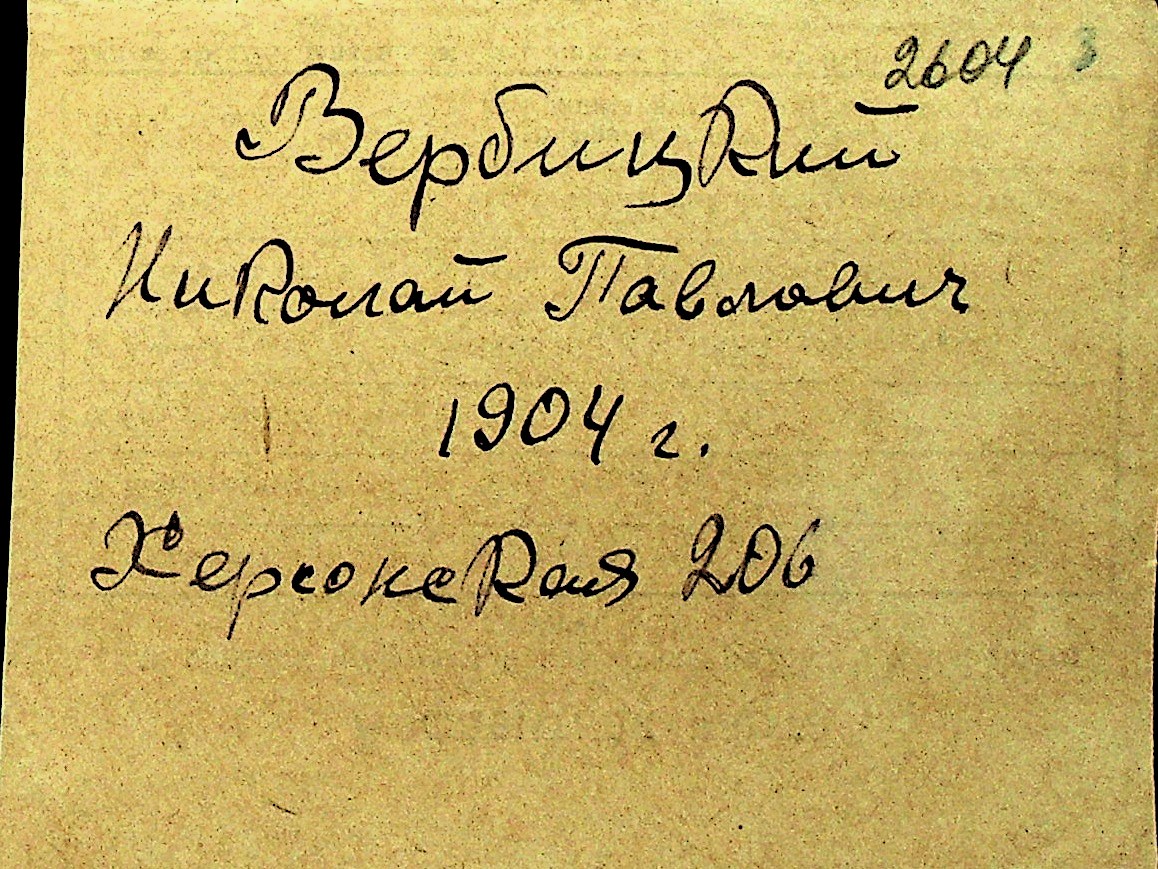 2604
Вербицкий
Николай Павлович
1904 г.
Херсонская 206